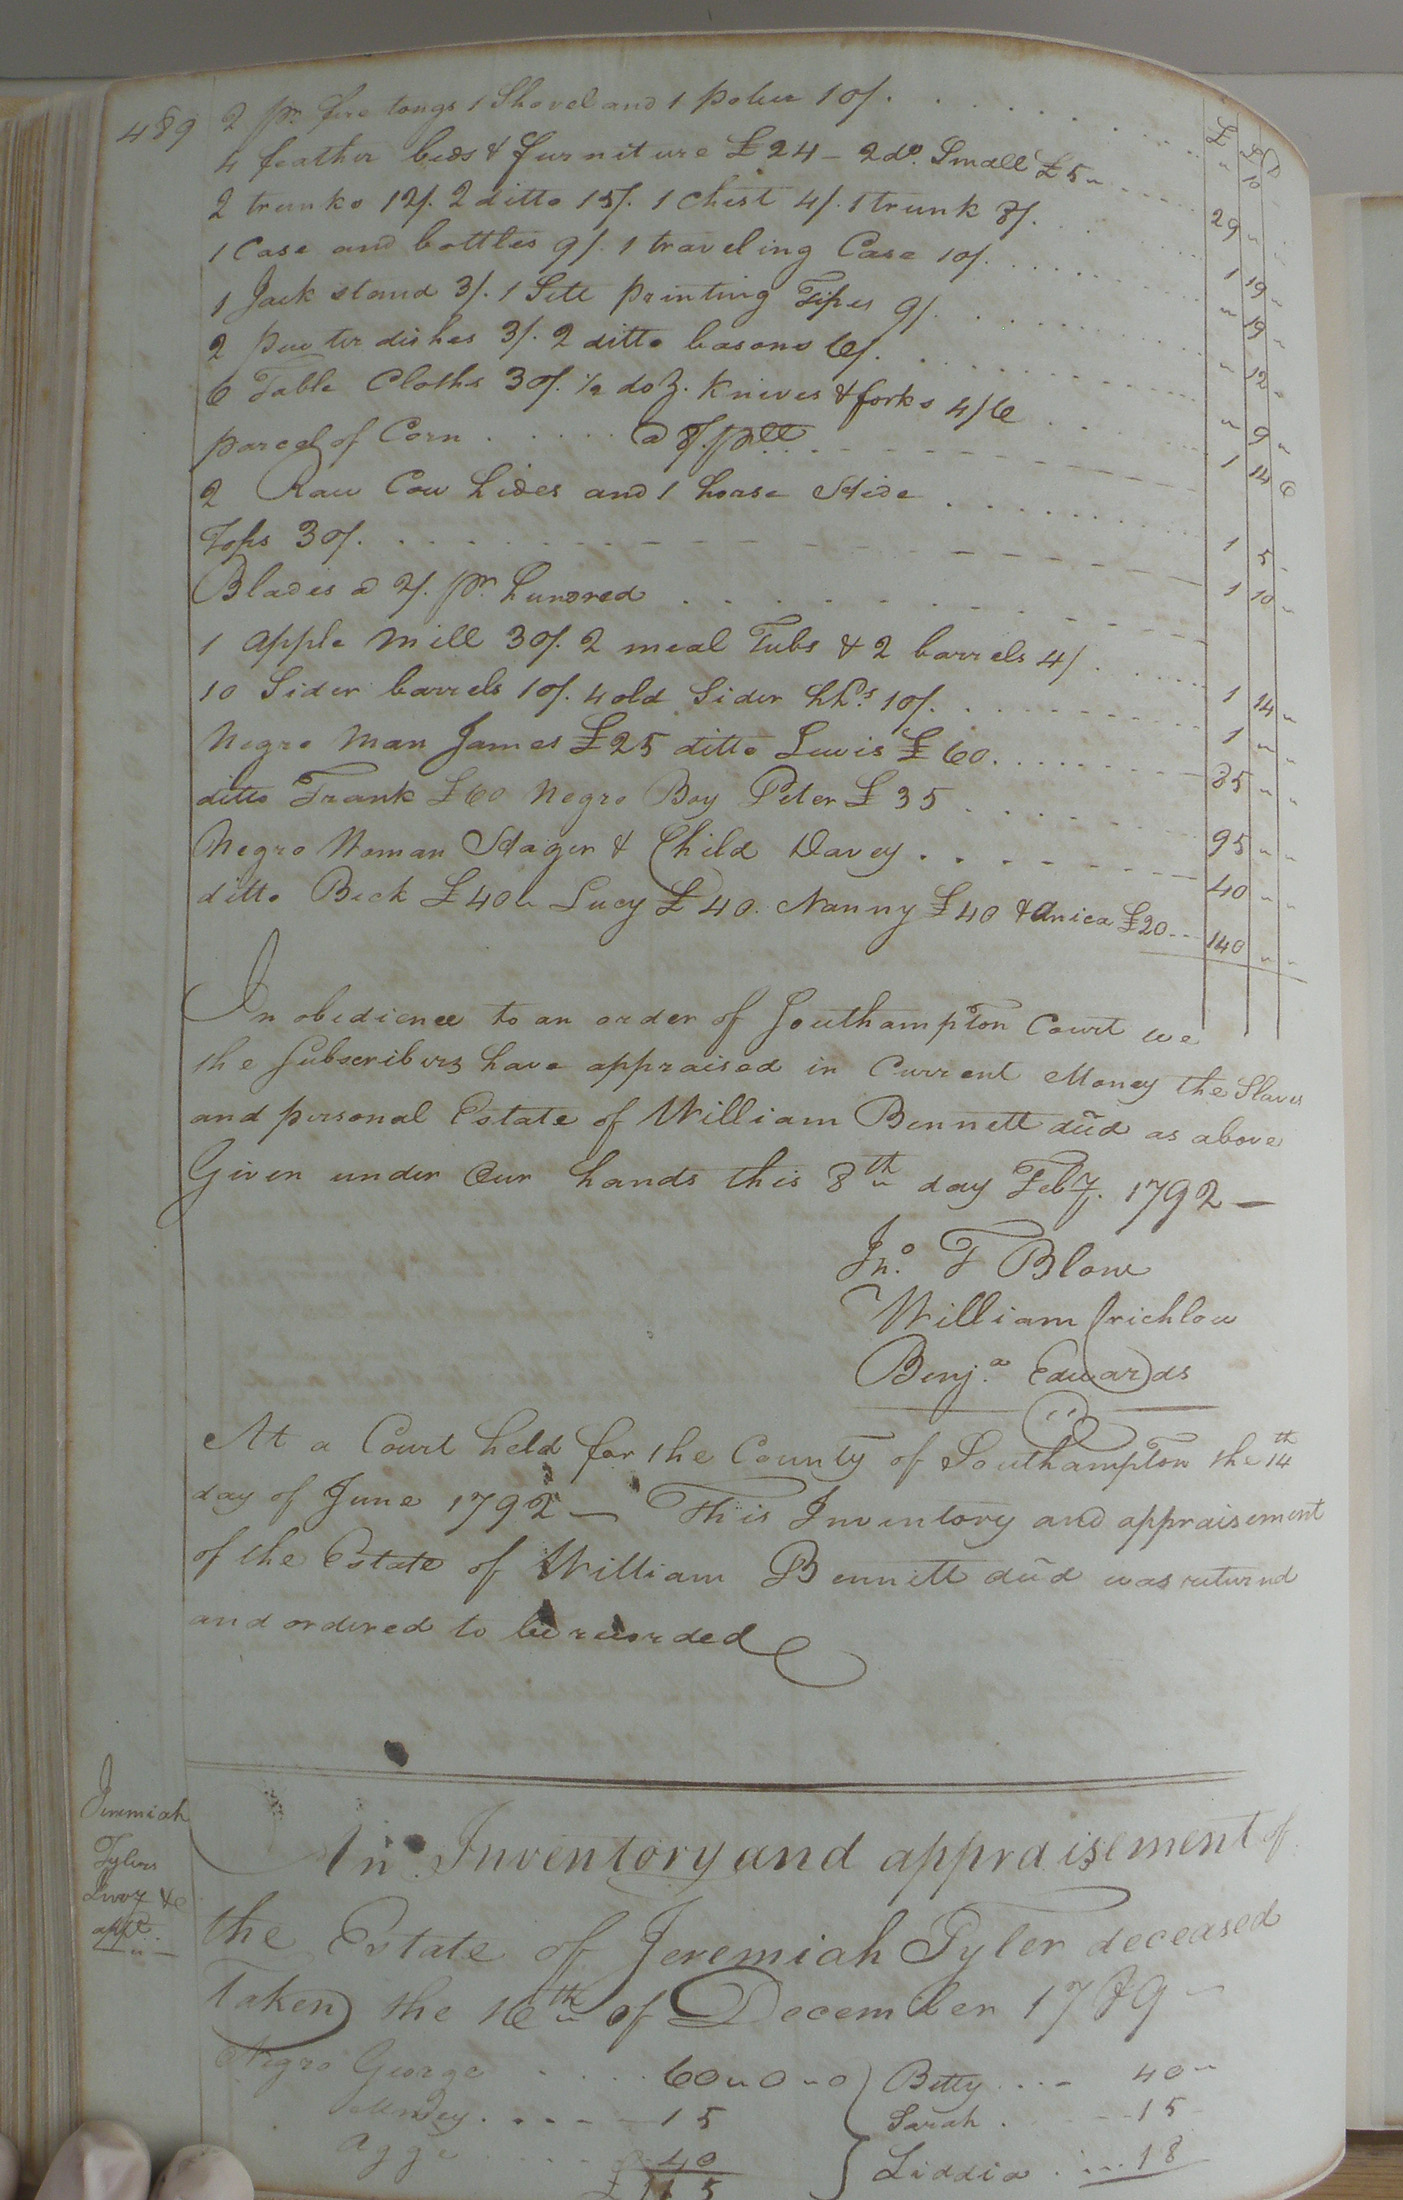 489
£ S D
2 pr. fire tongs 1 Shovel and 1 poker 10/. " 10
4 feather beds & furniture £24 – 2 do. Small £5 " 29 "
2 trunks 12/. 2 ditto 15/. 1 Chest 4/. 1 trunk 8/. 1 19 "
1 Case and bottles 9/. 1 traveling Case 10/. " 19 "
1 Jack stand 3/. 1 Sett printing Tipes 9/. " 12 "
2 pewter dishes 3/. 2 ditto basons 6/. " 9 "
6 Table Cloths 30/. ½ doz. Knives & forks 4/6 1 14 6
parcel of Corn @ 8/. pll
2 Raw Cow hides and 1 horse Hide 1 5 "
Tops 30/. 1 10 "
Blades @ 2/. pr. hundred
1 apple Mill 30/. 2 meal Tubs & 2 barrels 4/. 1 14 "
10 Sider barrels 10/. 4 old Sider hhds. 10/. 1 " "
Negro Man James £25 ditto Lewis £60. 85 " "
ditto Frank £60 Negro Boy Peter £35 95 " "
Negro Woman Hager & Child Davey 40 " "
ditto Beck £40 " Lucy £40. Nanny £40 & Anica £20 140 " "
In obedience to an order of Southampton Court we
the Subscribers have appraised in Current Money the Slaves
and personal Estate of William Bennett decd as above
Given under Our hands this 8th day Feby. 1792 —
Jno. T Blow
William Crichlow
Benja. Edwards
At a Court held for the County of Southampton the 14th
day of June 1792 — This Inventory and appraisement
of the Estate of William Bennett decd was returnd
and ordered to be recorded
Jeremiah
Tylers
Invy &c
appt.
An Inventory and appraisement of
the Estate of Jeremiah Tyler deceased
Taken the 16th of December 1789 –
Negro George 60 " 0 " 0 Betty 40 "
15 Sarah 15
Agge 40 Liddia 18
£115